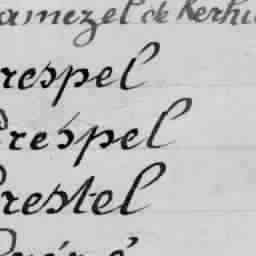 amezel de Kerhu
respel
Crespel
Crestel